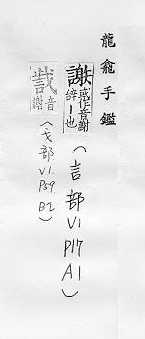 龍龕手鑑
謝
或作音謝
辞丨也
(言部
V1
P17
A1)
音
謝
(戈部
V1.
P59
B2)